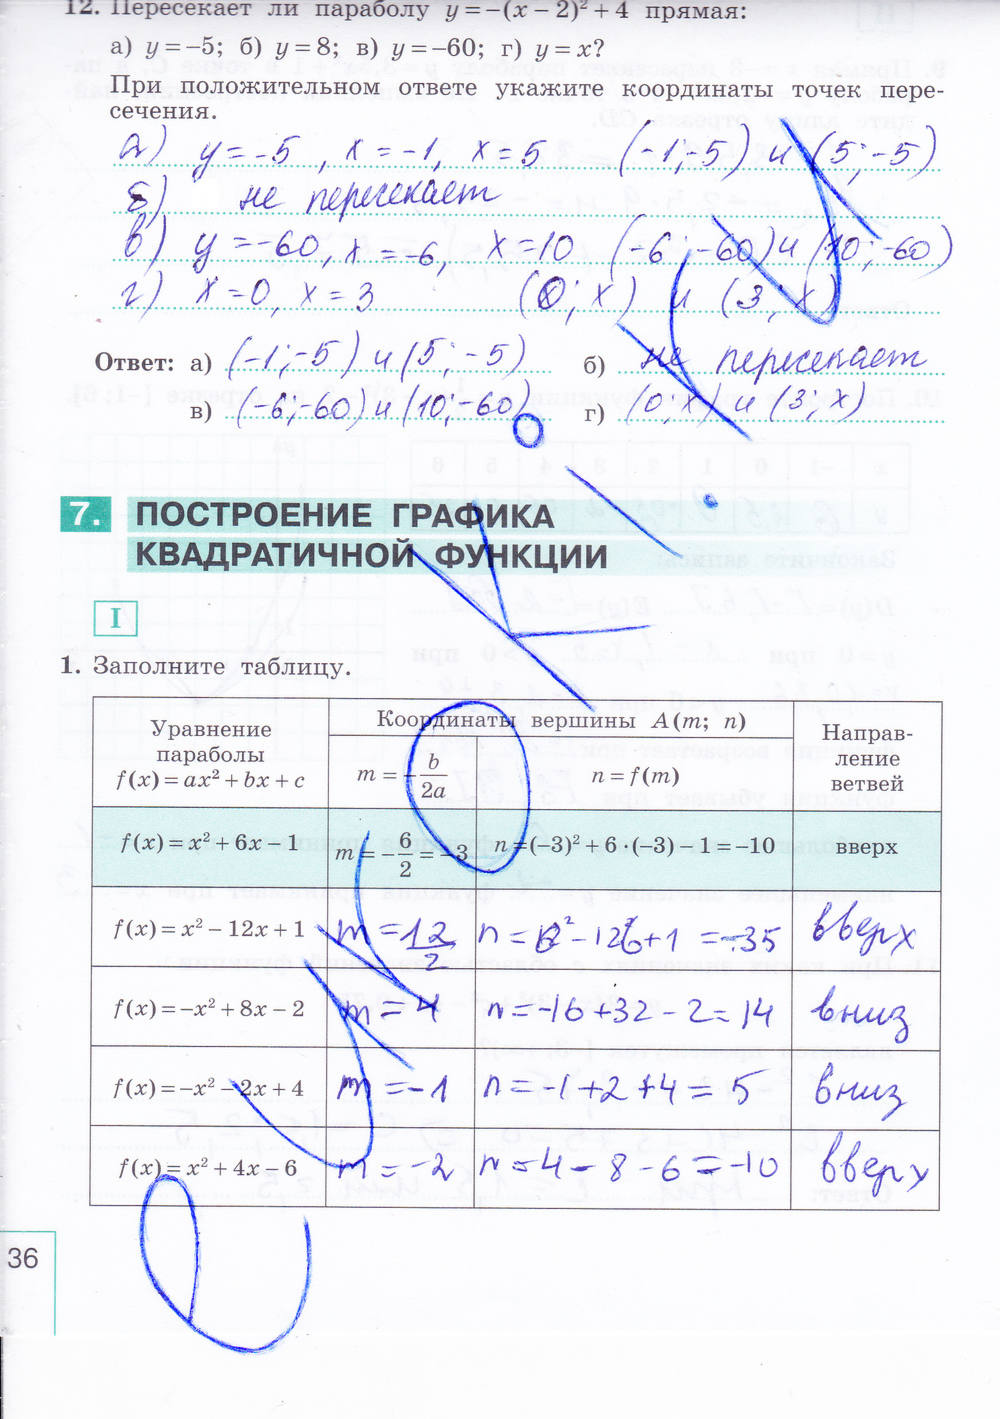 12. Пересекает ли параболу y = −(x − 2)² + 4 прямая:
а) y = −5; б) y = 8; в) y = −60; г) y = x?
При положительном ответе укажите координаты точек пере-
сечения.
а) y = -5, x = -1, x = 5 (-1; -5) и (5; -5)
б) не пересекает
в) y = -60, x = -6, x = 10 (-6; -60) и (10; -60)
г) x = 0, x = 3 (0; x) и (3; x)
Ответ: а) (-1; -5) и (5; -5) б) не пересекает
в) (-6; -60) и (10; -60) г) (0; x) и (3; x)
7. ПОСТРОЕНИЕ ГРАФИКА
КВАДРАТИЧНОЙ ФУНКЦИИ
I
1. Заполните таблицу.
Уравнение параболы f(x) = ax² + bx + c
Координаты вершины A(m; n)
Направ-
ление
ветвей
m = −b/2a
n = f(m)
f(x) = x² + 6x − 1 m = −6/2 = −3 n = (−3)² + 6·(−3) − 1 = −10 вверх
f(x) = x² − 12x + 1 m = 12/2 n = 6² - 12·6 + 1 = -35 вверх
f(x) = −x² + 8x − 2 m = 4 n = -16 + 32 - 2 = 14 вниз
f(x) = −x² − 2x + 4 m = -1 n = -1 + 2 + 4 = 5 вниз
f(x) = x² + 4x − 6 m = -2 n = 4 - 8 - 6 = -10 вверх
36